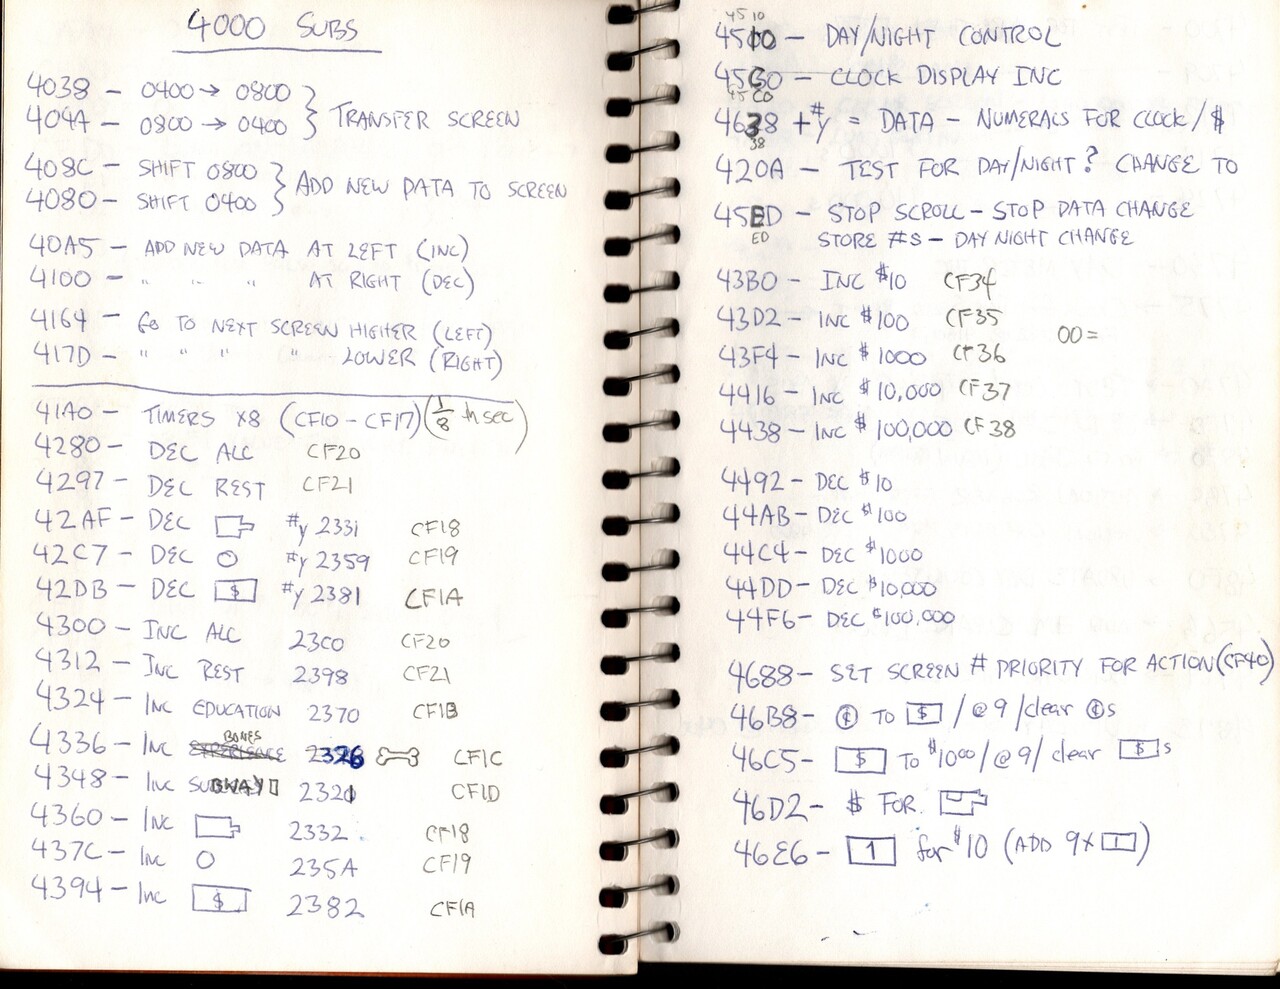 4000 SUBS
4038 – 0400 → 0800
404A – 0800 → 0400
TRANSFER SCREEN
408C – SHIFT 0800
4080 – SHIFT 0400
ADD NEW DATA TO SCREEN
40A5 – ADD NEW DATA AT LEFT (INC)
4100 – " " " AT RIGHT (DEC)
4164 – GO TO NEXT SCREEN HIGHER (LEFT)
417D – " " " " LOWER (RIGHT)
41A0 – TIMERS X8 (CF10 – CF17) (1/8 th sec)
4280 – DEC ALC CF20
4297 – DEC REST CF21
42AF – DEC #y 2331 CF18
42C7 – DEC O #y 2359 CF19
42DB – DEC $ #y 2381 CF1A
4300 – INC ALC 23C0 CF20
4312 – INC REST 2398 CF21
4324 – INC EDUCATION 2370 CF1B
BONES
4336 – INC EXPERIENCE 2326 CF1C
4348 – INC SUBWAY 2321 CF1D
4360 – INC 2332 CF18
437C – INC O 235A CF19
4394 – INC $ 2382 CF1A
45 10
4510 – DAY/NIGHT CONTROL
45C0 – CLOCK DISPLAY INC
45 C0
4638 + #y = DATA – NUMERALS FOR CLOCK/$
38
420A – TEST FOR DAY/NIGHT? CHANGE TO
45ED – STOP SCROLL – STOP DATA CHANGE
ED STORE #S – DAY NIGHT CHANGE
43B0 – INC $10 CF34
43D2 – INC $100 CF35
00 =
43F4 – INC $1000 CF36
4416 – INC $10,000 CF37
4438 – INC $100,000 CF38
4492 – DEC $10
44AB – DEC $100
44C4 – DEC $1000
44DD – DEC $10,000
44F6 – DEC $100,000
4688 – SET SCREEN # PRIORITY FOR ACTION (CF40)
46B8 – ¢ TO $ / @ 9 / clear ¢s
46C5 – $ TO $1000 / @ 9 / clear $ s
46D2 – $ FOR
46E6 – 1 for $10 (ADD 9 X 1)